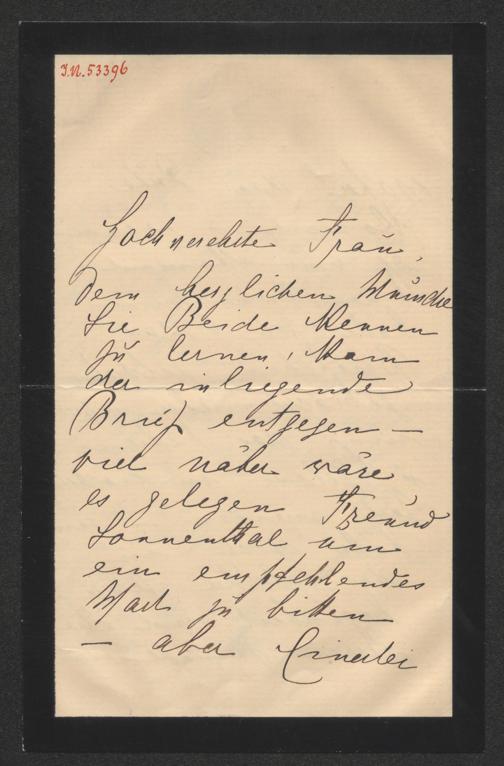 I.N. 53396
Hochverehrte Frau,
Dem herzlichen Wunsche
Sie Beide Kennen
zu lernen, Kam
der inliegende
Brief entgegen —
viel näher wäre
es gelegen Freund
Sonnenthal um
ein empfehlendes
Wort zu bitten
— aber Einerlei